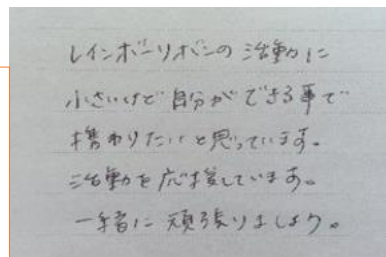 レインボーリボンの活動に
小さいけど自分ができる事で
携わりたいと思っています。
活動を応援しています。
一緒に頑張りましょう。